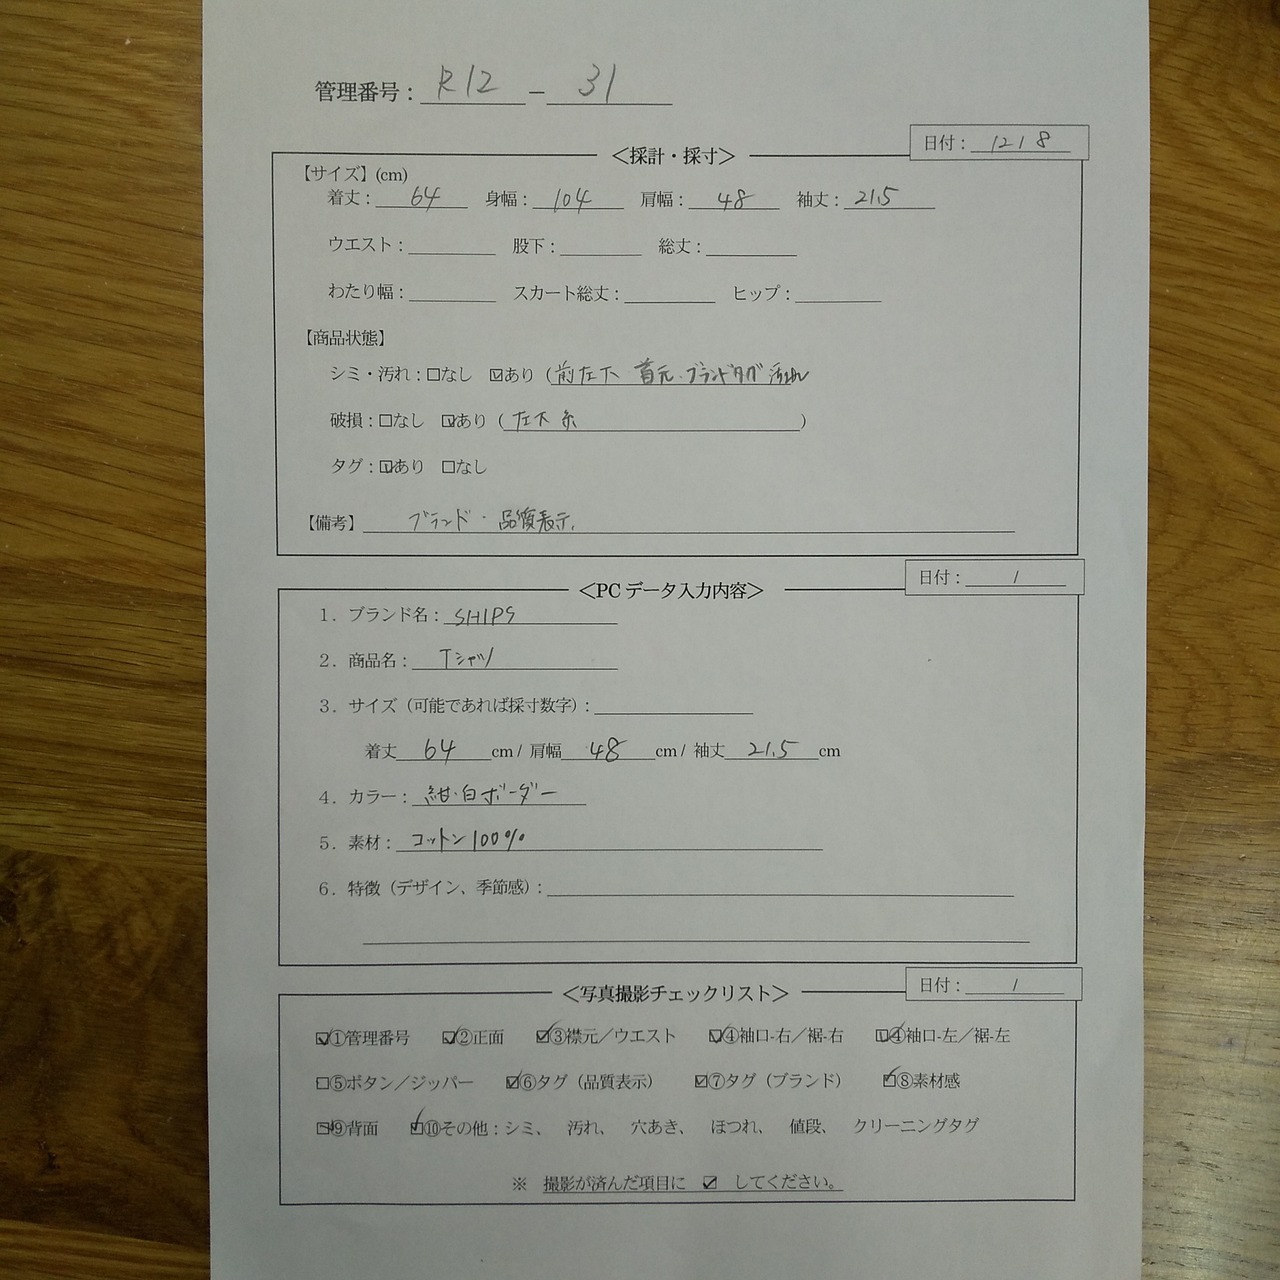 管理番号：R12－31
日付：1218
＜採計・採寸＞
【サイズ】(cm)
着丈：64 身幅：104 肩幅：48 袖丈：21.5
ウエスト： 股下： 総丈：
わたり幅： スカート総丈： ヒップ：
【商品状態】
シミ・汚れ：□なし ☑あり（前左下 首元・ブランドタグ 汚れ
破損：□なし ☑あり（左下 糸）
タグ：☑あり □なし
【備考】 ブランド・品質表示
＜PCデータ入力内容＞
日付： /
1．ブランド名：SHIPS
2．商品名：Tシャツ
3．サイズ（可能であれば採寸数字）：
着丈 64 cm / 肩幅 48 cm / 袖丈 21.5 cm
4．カラー：紺・白ボーダー
5．素材：コットン100%
6．特徴（デザイン、季節感）：
＜写真撮影チェックリスト＞
日付： /
☑①管理番号 ☑②正面 ☑③襟元／ウエスト ☑④袖口-右／裾-右 ☑④袖口-左／裾-左
□⑤ボタン／ジッパー ☑⑥タグ（品質表示） ☑⑦タグ（ブランド） ☑⑧素材感
☑⑨背面 ☑⑩その他：シミ、 汚れ、 穴あき、 ほつれ、 値段、 クリーニングタグ
※ 撮影が済んだ項目に ☑ してください。